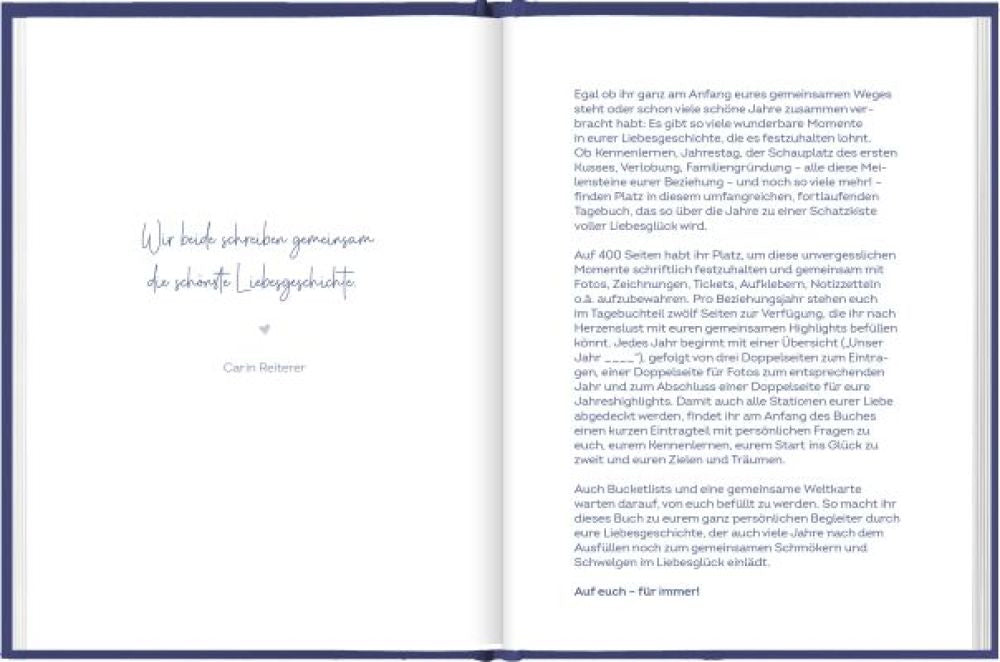 Wir beide schreiben gemeinsam
die schönste Liebesgeschichte.
Carin Reiterer
Egal ob ihr ganz am Anfang eures gemeinsamen Weges
steht oder schon viele schöne Jahre zusammen ver-
bracht habt: Es gibt so viele wunderbare Momente
in eurer Liebesgeschichte, die es festzuhalten lohnt.
Ob Kennenlernen, Jahrestag, der Schauplatz des ersten
Kusses, Verlobung, Familiengründung – alle diese Mei-
lensteine eurer Beziehung – und noch so viele mehr! –
finden Platz in diesem umfangreichen, fortlaufenden
Tagebuch, das so über die Jahre zu einer Schatzkiste
voller Liebesglück wird.
Auf 400 Seiten habt ihr Platz, um diese unvergesslichen
Momente schriftlich festzuhalten und gemeinsam mit
Fotos, Zeichnungen, Tickets, Aufklebern, Notizzetteln
o.ä. aufzubewahren. Pro Beziehungsjahr stehen euch
im Tagebuchteil zwölf Seiten zur Verfügung, die ihr nach
Herzenslust mit euren gemeinsamen Highlights befüllen
könnt. Jedes Jahr beginnt mit einer Übersicht („Unser
Jahr ____“), gefolgt von drei Doppelseiten zum Eintra-
gen, einer Doppelseite für Fotos zum entsprechenden
Jahr und zum Abschluss einer Doppelseite für eure
Jahreshighlights. Damit auch alle Stationen eurer Liebe
abgedeckt werden, findet ihr am Anfang des Buches
einen kurzen Eintragteil mit persönlichen Fragen zu
euch, eurem Kennenlernen, eurem Start ins Glück zu
zweit und euren Zielen und Träumen.
Auch Bucketlists und eine gemeinsame Weltkarte
warten darauf, von euch befüllt zu werden. So macht ihr
dieses Buch zu eurem ganz persönlichen Begleiter durch
eure Liebesgeschichte, der auch viele Jahre nach dem
Ausfüllen noch zum gemeinsamen Schmökern und
Schwelgen im Liebesglück einlädt.
Auf euch – für immer!